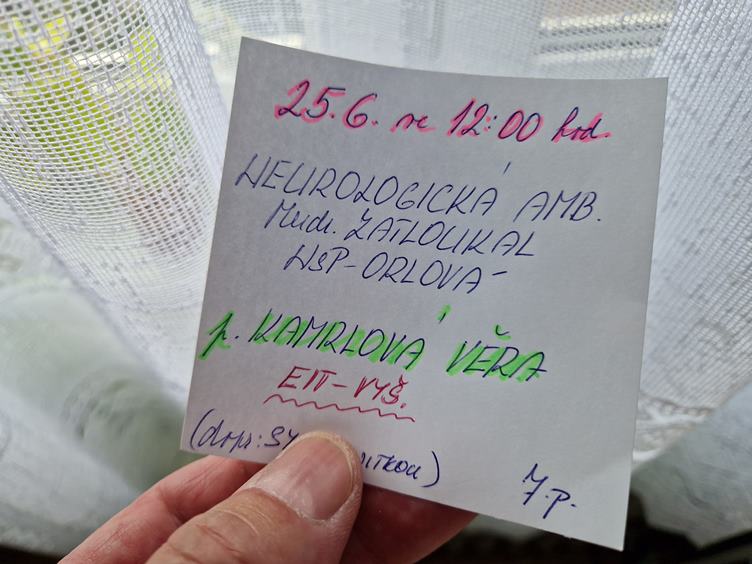 25.6. ve 12:00 hod.
NEUROLOGICKÁ AMB.
Mudr. ZATLOUKAL
NSP-ORLOVÁ
p. KAMRLOVÁ VĚRA
VYŠ.
7.p.